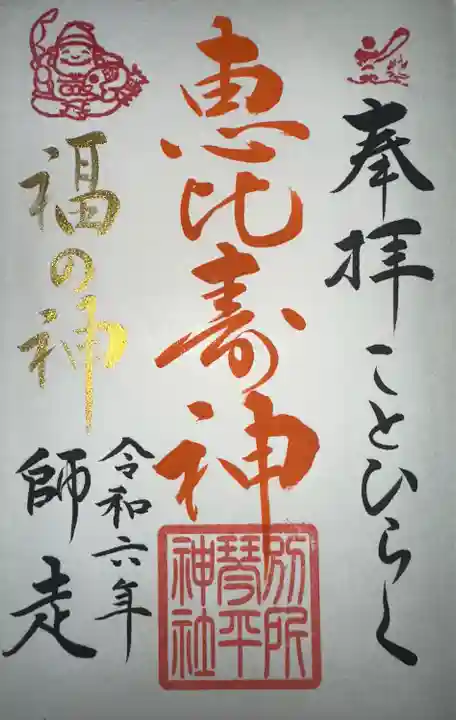 奉拝ことひらく
恵比寿神
別所
琴平
神社
福の神
令和六年
師走